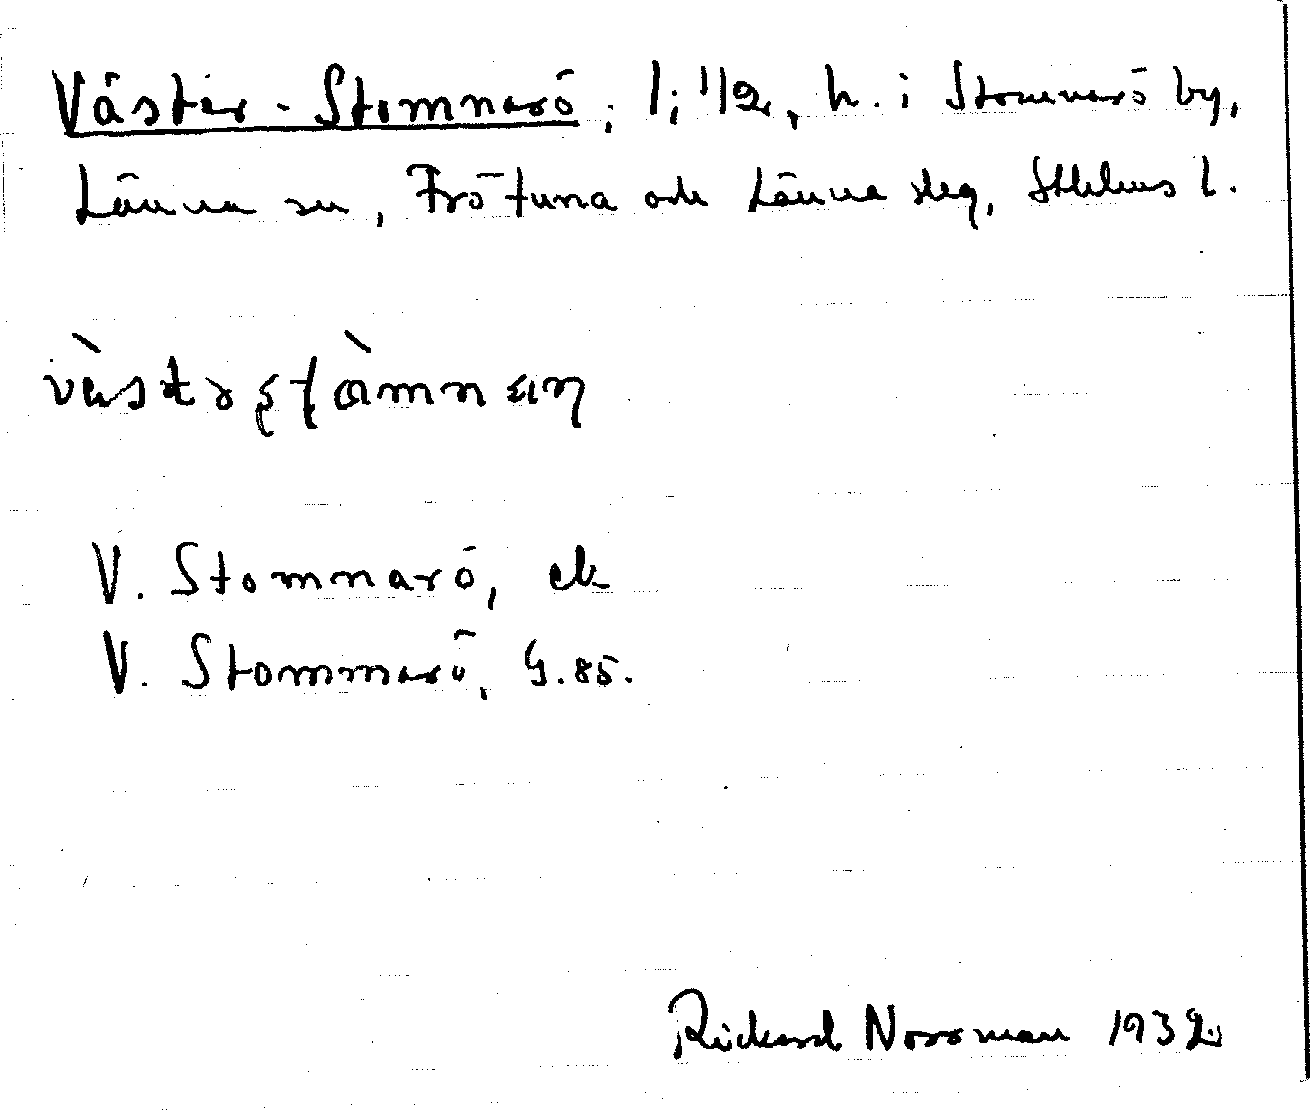 Väster-Stomnarö, 1; 1/2, h. i Stomnarö by,
Länna sn, Frötuna och Länna skg, Sthlms l.
V. Stomnarö, ek
V. Stommarö, G.85.
Rickard Norrman 1932.